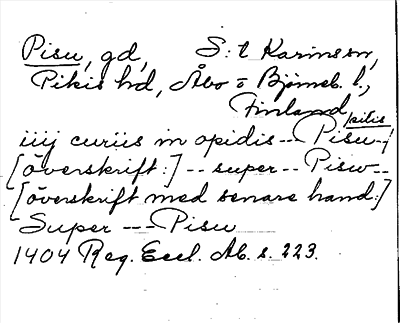 Pisu, gd, S:t Karins sn,
Pikis hd, Åbo o Björneb. l.,
Finland,
sitis
iiij curiis in opidis --- Pisu --/
[överskrift:] -- super -- Pisw --
[överskrift med senare hand:]
Super --- Pisu
1404 Reg. Eccl. Ab. s. 223.